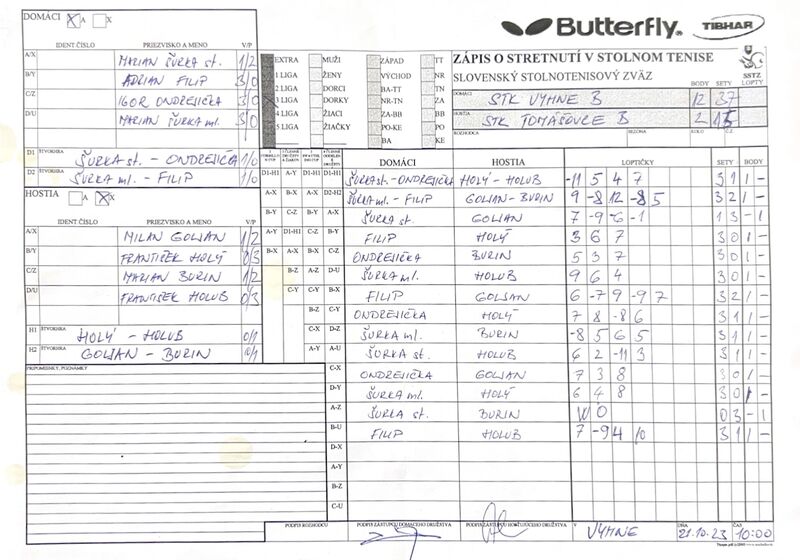 DOMÁCI X A X
Butterfly. TIBHAR
IDENT.ČÍSLO PRIEZVISKO A MENO V/P
A/X MARIAN ŠURKA st. 1/2
B/Y ADRIAN FILIP 3/0
C/Z IGOR ONDREJIČKA 3/0
D/U MARIAN ŠURKA ml. 3/0
D1 ŠTVORHRA ŠURKA st. - ONDREJIČKA 1/0
D2 ŠTVORHRA ŠURKA ml. - FILIP 1/0
EXTRA MUŽI ZÁPAD TT
1 LIGA ŽENY VÝCHOD NR
2 LIGA DORCI BA-TT TN
3 LIGA DORKY NR-TN ZA
4 LIGA ŽIACI ZA-BB BB
5 LIGA ŽIAČKY PO-KE PO
BA KE
ZÁPIS O STRETNUTÍ V STOLNOM TENISE
SLOVENSKÝ STOLNOTENISOVÝ ZVÄZ
SSTZ
BODY SETY LOPTY
DOMÁCI STK VYHNE B 12 37
HOSTIA STK TOMÁŠOVCE B 2 15
ROZHODCA SEZÓNA KOLO Č.Z.
HOSTIA A X X
IDENT.ČÍSLO PRIEZVISKO A MENO V/P
A/X MILAN GOLJAN 1/2
B/Y FRANTIŠEK HOLÝ 0/3
C/Z MARIAN BURIN 1/2
D/U FRANTIŠEK HOLUB 0/3
H1 ŠTVORHRA HOLÝ - HOLUB 0/1
H2 ŠTVORHRA GOLJAN - BURIN 0/1
PRIPOMIENKY, POZNÁMKY
DOMÁCI HOSTIA LOPTIČKY SETY BODY
D1-H1 A-Y D1-H1 D1-H1 ŠURKA st. - ONDREJIČKA HOLÝ - HOLUB -11 5 4 7 3 1 1 -
A-X B-X A-X D2-H2 ŠURKA ml. - FILIP GOLJAN - BURIN 9 -8 12 -8 5 3 2 1 -
B-Y C-Z B-Y A-X ŠURKA st. GOLJAN 7 -9 -6 -1 1 3 - 1
A-Y D1-H1 C-Z B-Y FILIP HOLÝ 3 6 7 3 0 1 -
B-X A-X B-X C-Z ONDREJIČKA BURIN 5 3 7 3 0 1 -
B-Z A-Z D-U ŠURKA ml. HOLUB 9 6 4 3 0 1 -
C-Y B-Y B-X FILIP GOLJAN 6 -7 9 -9 7 3 2 1 -
B-Z C-Y ONDREJIČKA HOLÝ 7 8 -8 6 3 1 1 -
C-X D-Z ŠURKA ml. BURIN -8 5 6 5 3 1 1 -
A-Y A-U ŠURKA st. HOLUB 6 2 -11 3 3 1 1 -
C-X ONDREJIČKA GOLJAN 7 3 8 3 0 1 -
D-Y ŠURKA ml. HOLÝ 6 4 8 3 0 1 -
A-Z ŠURKA st. BURIN WO 0 3 - 1
B-U FILIP HOLUB 7 -9 4 10 3 1 1 -
D-X
A-Y
B-Z
C-U
PODPIS ROZHODCU PODPIS ZÁSTUPCU DOMÁCEHO DRUŽSTVA PODPIS ZÁSTUPCU HOSŤUJÚCEHO DRUŽSTVA V VYHNE DŇA 21.10.23 ČAS 10:00